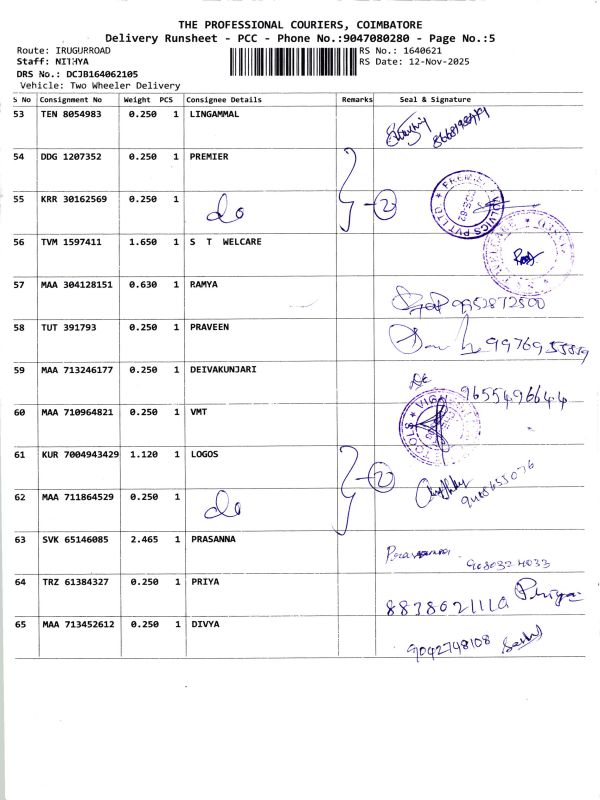 THE PROFESSIONAL COURIERS, COIMBATORE
Delivery Runsheet - PCC - Phone No.:9047080280 - Page No.:5
Route: IRUGURROAD
RS No.: 1640621
Staff: NITHYA
RS Date: 12-Nov-2025
DRS No.: DCJB164062105
Vehicle: Two Wheeler Delivery
S No Consignment No Weight PCS Consignee Details Remarks Seal & Signature
53 TEN 8054983 0.250 1 LINGAMMAL
54 DDG 1207352 0.250 1 PREMIER
55 KRR 30162569 0.250 1 do 2
56 TVM 1597411 1.650 1 S T WELCARE
57 MAA 304128151 0.630 1 RAMYA 9952872500
58 TUT 391793 0.250 1 PRAVEEN
59 MAA 713246177 0.250 1 DEIVAKUNJARI 9655496644
60 MAA 710964821 0.250 1 VMT
61 KUR 7004943429 1.120 1 LOGOS 2
62 MAA 711864529 0.250 1 do
63 SVK 65146085 2.465 1 PRASANNA
64 TRZ 61384327 0.250 1 PRIYA Priya
65 MAA 713452612 0.250 1 DIVYA 9042748108